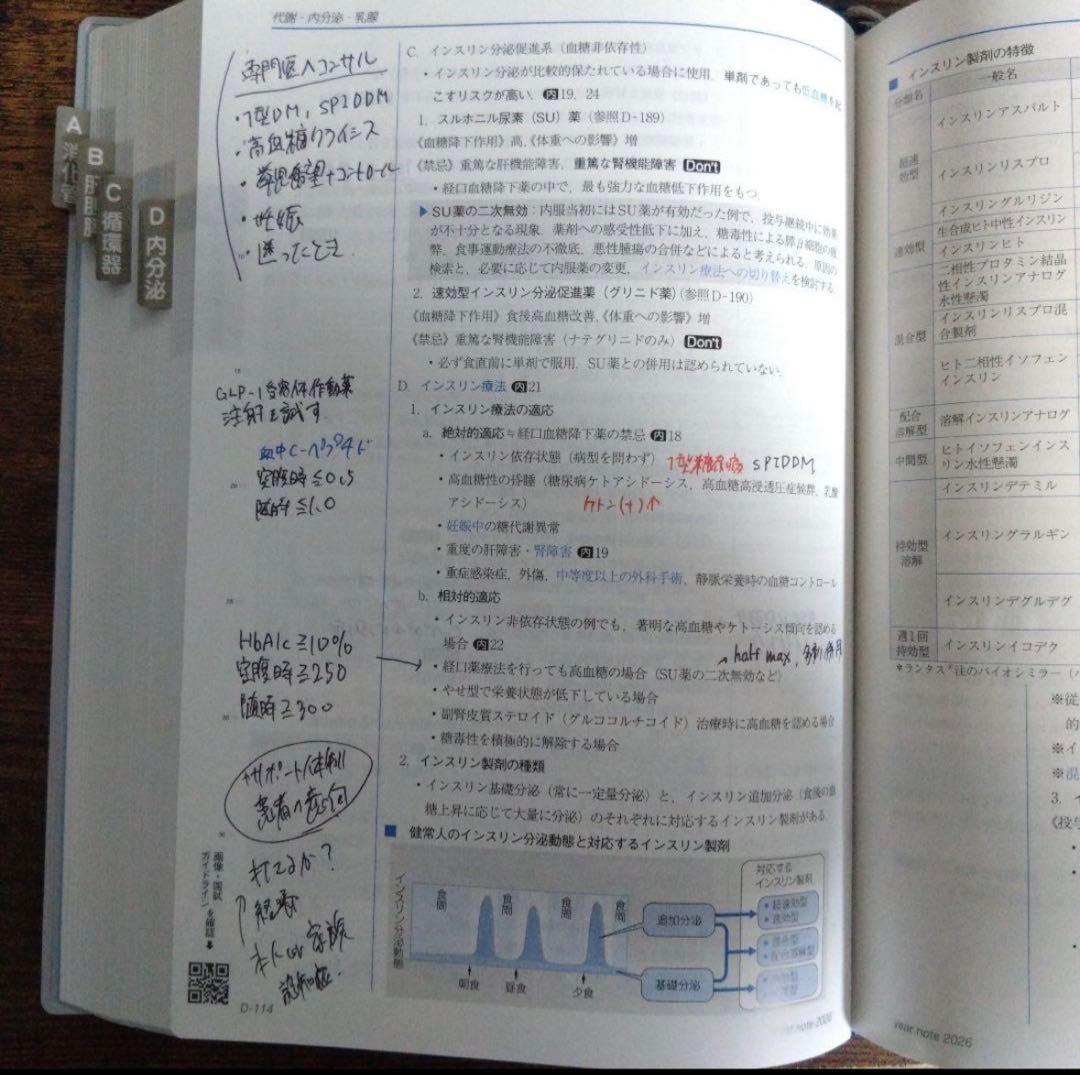 代謝・内分泌・乳腺
専門医へコンサル
・1型DM, SPIDDM
・高血糖クライシス
・挙児希望+コントロール
・妊娠
・迷ったとき
A 消化管
B 肝胆膵
C 循環器
D 内分泌
GLP-1受容体作動薬
注射も試す
血中C-ペプチド
空腹時≦0.5
随時≦1.0
HbA1c≧10%
空腹時≧250
随時≧300
サポート体制
患者の意向
打てるか?
経済
本人or家族
認知症
画像・国試
ガイドラインを確認
D-114
C. インスリン分泌促進系(血糖非依存性)
・インスリン分泌が比較的保たれている場合に使用. 単剤であっても低血糖を起
こすリスクが高い. 内19, 24
1. スルホニル尿素(SU)薬(参照D-189)
《血糖降下作用》高,《体重への影響》増
《禁忌》重篤な肝機能障害, 重篤な腎機能障害 Don't
・経口血糖降下薬の中で, 最も強力な血糖低下作用をもつ.
▶SU薬の二次無効:内服当初にはSU薬が有効だった例で, 投与継続中に効果
が不十分となる現象. 薬剤への感受性低下に加え, 糖毒性による膵β細胞の疲
弊, 食事運動療法の不徹底, 悪性腫瘍の合併などによると考えられる. 原因の
検索と, 必要に応じて内服薬の変更, インスリン療法への切り替えを検討する.
2. 速効型インスリン分泌促進薬(グリニド薬)(参照D-190)
《血糖降下作用》食後高血糖改善,《体重への影響》増
《禁忌》重篤な腎機能障害(ナテグリニドのみ) Don't
・必ず食直前に単剤で服用. SU薬との併用は認められていない.
D. インスリン療法 内21
1. インスリン療法の適応
a. 絶対的適応≒経口血糖降下薬の禁忌 内18
・インスリン依存状態(病型を問わず) 1型糖尿病 SPIDDM
・高血糖性の昏睡(糖尿病ケトアシドーシス, 高血糖高浸透圧症候群, 乳酸
アシドーシス) ケトン(+)↑
・妊娠中の糖代謝異常
・重度の肝障害・腎障害 内19
・重症感染症, 外傷, 中等度以上の外科手術, 静脈栄養時の血糖コントロール
b. 相対的適応
・インスリン非依存状態の例でも, 著明な高血糖やケトーシス傾向を認める
場合 内22
half max, 多剤併用
・経口薬療法を行っても高血糖の場合(SU薬の二次無効など)
・やせ型で栄養状態が低下している場合
・副腎皮質ステロイド(グルココルチコイド)治療時に高血糖を認める場合
・糖毒性を積極的に解除する場合
2. インスリン製剤の種類
・インスリン基礎分泌(常に一定量分泌)と, インスリン追加分泌(食後の血
糖上昇に応じて大量に分泌)のそれぞれに対応するインスリン製剤がある.
■ 健常人のインスリン分泌動態と対応するインスリン製剤
インスリン分泌動態
食間
食間
食間
食間
朝食
昼食
夕食
追加分泌
基礎分泌
対応する
インスリン製剤
・超速効型
・速効型
・混合型
・配合溶解型
year note 2026
■ インスリン製剤の特徴
分類名
一般名
超速効型
インスリンアスパルト
インスリンリスプロ
インスリングルリジン
速効型
生合成ヒト中性インスリン
インスリンヒト
混合型
二相性プロタミン結晶
性インスリンアナログ
水性懸濁
インスリンリスプロ混
合製剤
ヒト二相性イソフェン
インスリン
配合
溶解型
溶解インスリンアナログ
中間型
ヒトイソフェンインス
リン水性懸濁
持効型
溶解
インスリンデテミル
インスリングラルギン
インスリンデグルデグ
週1回
持効型
インスリンイコデク
*ランタス®注のバイオシミラー
※従
的
※イ
※混
3.
《投与
year note 2026